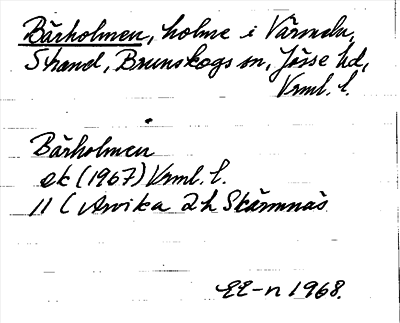 Bärholmen, holme i Värmeln,
Strand, Brunskogs sn, Jösse hd,
Vrml. l.
Bärholmen
ek (1967) Vrml. l.
11 C Arvika 2h Skämnäs
EE-n 1968.